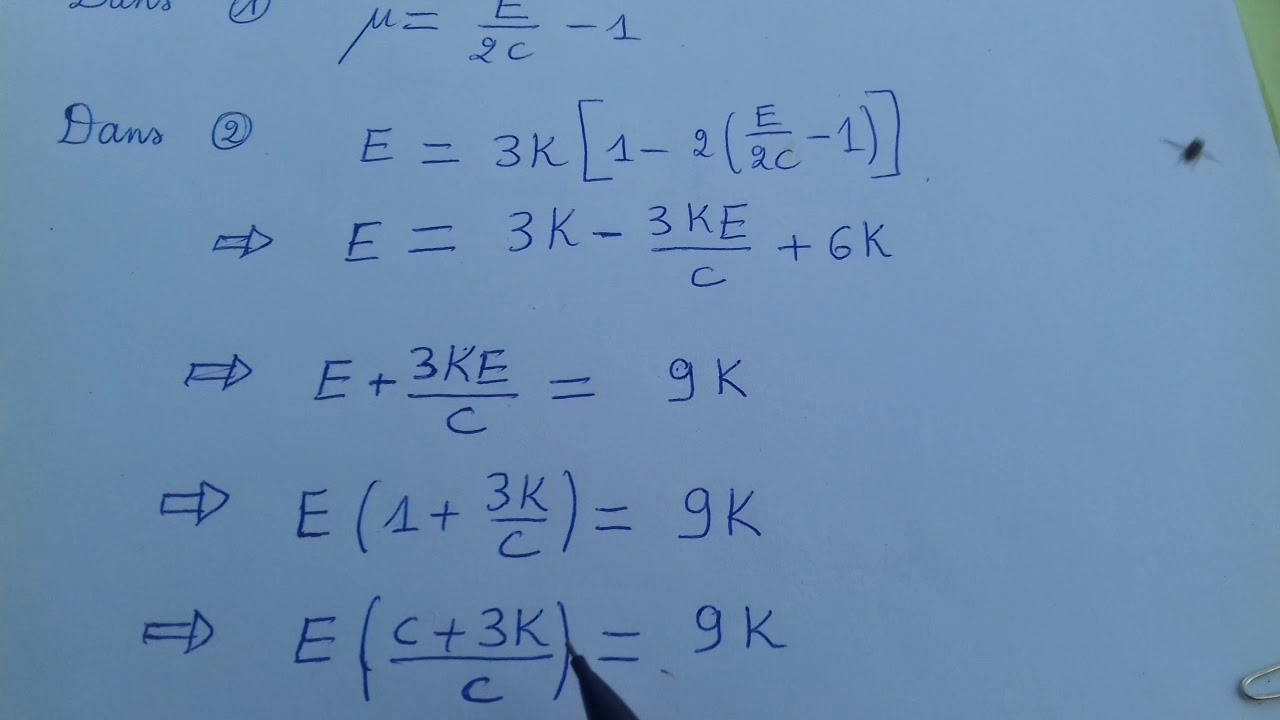 Dans ① μ = E/2C − 1
Dans ② E = 3K[1 − 2(E/2C − 1)]
⇒ E = 3K − 3KE/C + 6K
⇒ E + 3KE/C = 9K
⇒ E(1 + 3K/C) = 9K
⇒ E(C + 3K/C) = 9K